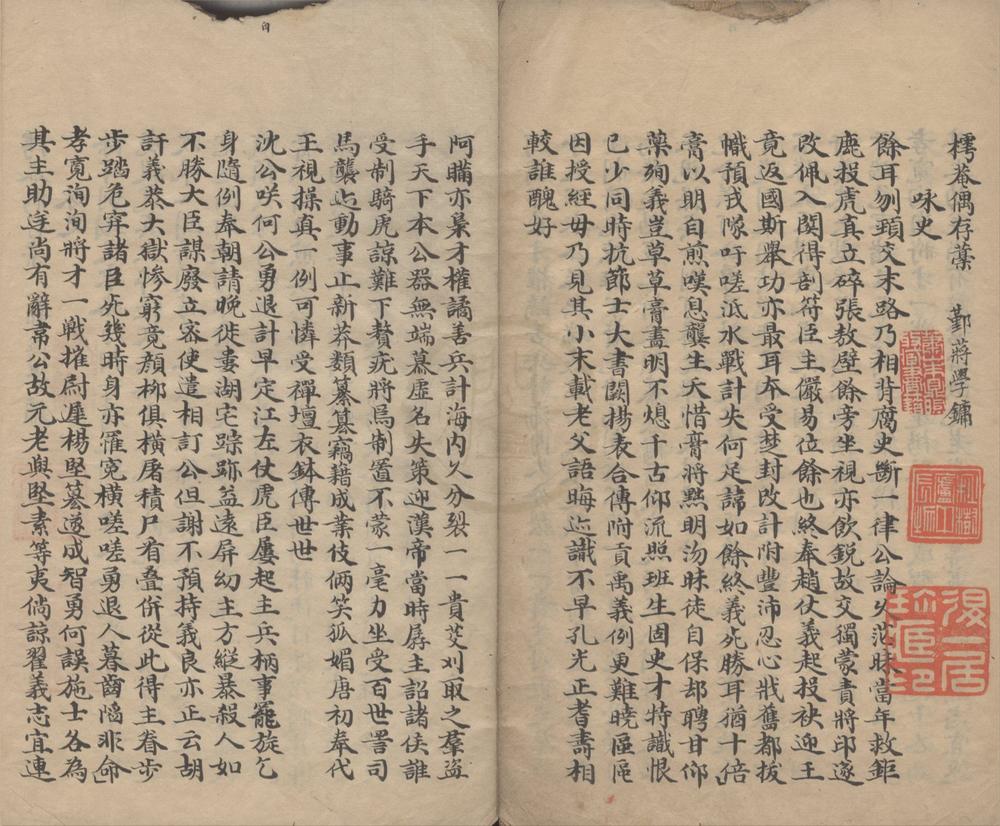 樗菴偶存藁　鄞蔣學鏞
咏史
餘耳刎頸交末路乃相背腐史斷一律公論久茫昧當年救鉅
鹿投虎真立碎張敖壁餘旁坐視亦飲銳故交獨蒙責將印遂
改佩入関得剖符臣主儼易位餘也終奉趙仗義起投袂迎王
竟返國斯舉功亦最耳夲受楚封改計附豐沛忍心戕舊都拔
幟預戎隊吁嗟泜水戰計失何足諱如餘終義死勝耳猶十倍
膏以明自煎嘆息龔生夭惜膏將㸃明沕昧徒自保却聘甘仰
藥殉義豈草草膏晝明不熄千古仰流照班生固史才特識恨
已少同時抗節士大書闕揚表合傳附貢禹義例更難曉區區
因授經毋乃見其小末載老父語晦迹識不早孔光正耆壽相
較誰醜好
阿瞞亦梟才權譎善兵計海内久分裂一一貴艾刈取之羣盜
手天下本公器無端慕虛名失策迎漢帝當時孱主詔諸侯誰
受制騎虎諒難下贅疣將焉制置不蒙一毫力坐受百世詈司
馬龔迹動事止新莽類纂篡竊藉成業伎俩笑狐媚唐初奉代
王視操真一例可憐受禪壇衣鉢傳世世
沈公咲何公勇退計早定江左仗虎臣屢起主兵柄事罷旋乞
身隨例奉朝請晚徙婁湖宅踪跡益遠屏幼主方縱暴殺人如
不勝大臣謀廢立審使遣相訂公但謝不預持義良亦正云胡
訐義恭大獄慘窮竟顔栁俱横屠積尸看叠併從此得主眷步
步踏危穽諸臣死幾時身亦罹寃横嗟嗟勇退人暮齒惱非命
孝寛洵洵將才一戰摧尉遲楊堅簒遂成智勇何誤施士各為
其主助逆尚有辭韋公故元老與堅素等夷倘諒翟義志宜連